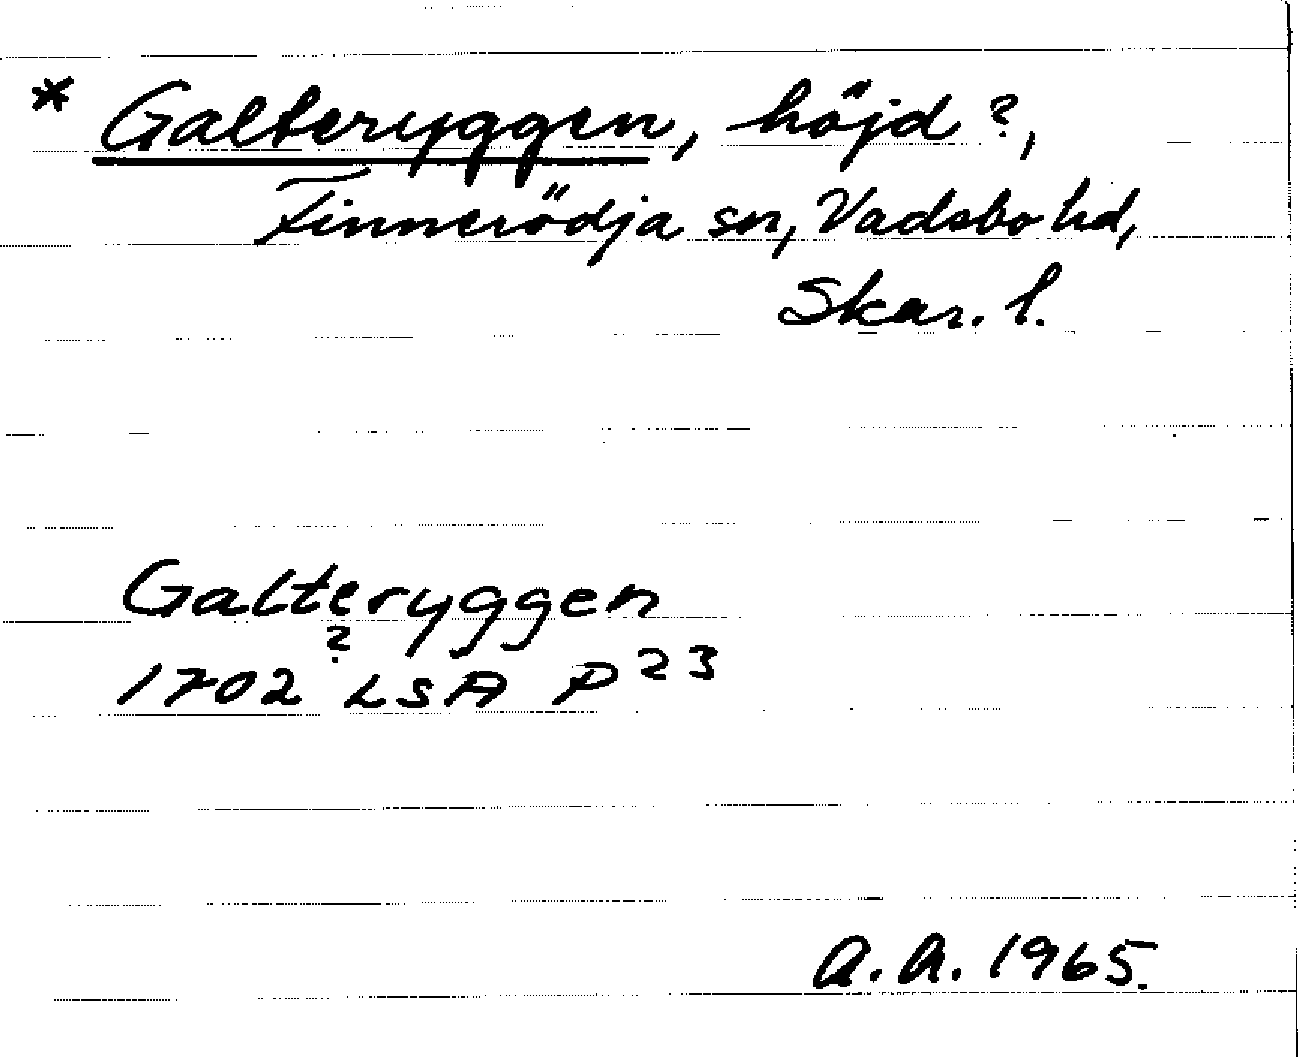 * Galteryggen, höjd?,
Finnerödja sn, Vadsbo hd,
Skar. l.
Galteryggen
?
1702 LSA P 23
A.A. 1965.